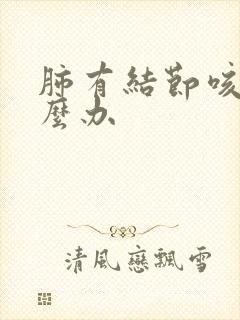 肺有結節咳
麼办
清風戀飄雪